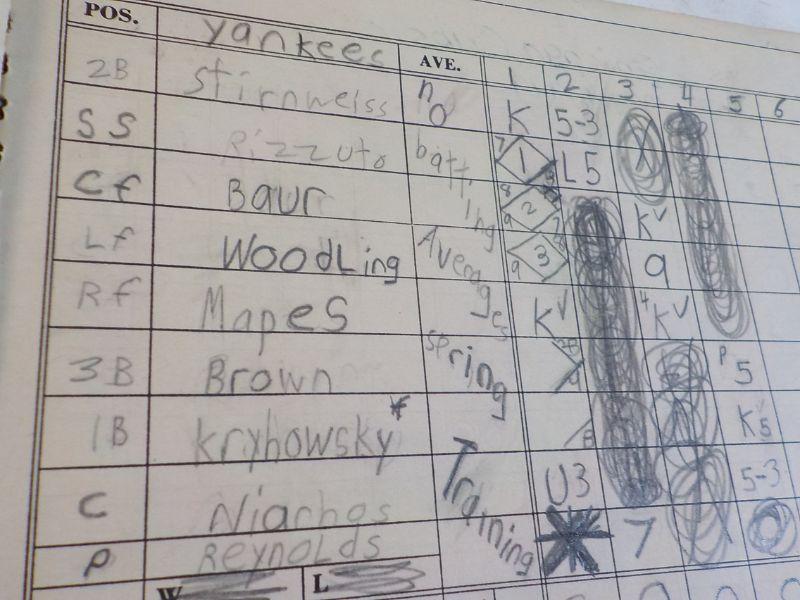 POS. Yankees AVE. 1 2 3 4 5 6
2B Stirnweiss no K 5-3
SS Rizzuto batt 1 L5
Cf Baur ing 2 K
Lf Woodling Averages 3 9
Rf Mapes K 4 K
3B Brown Spring P 5
1B Kryhowsky* K5
C Niarhos Training U3 5-3
P Reynolds 7
W L